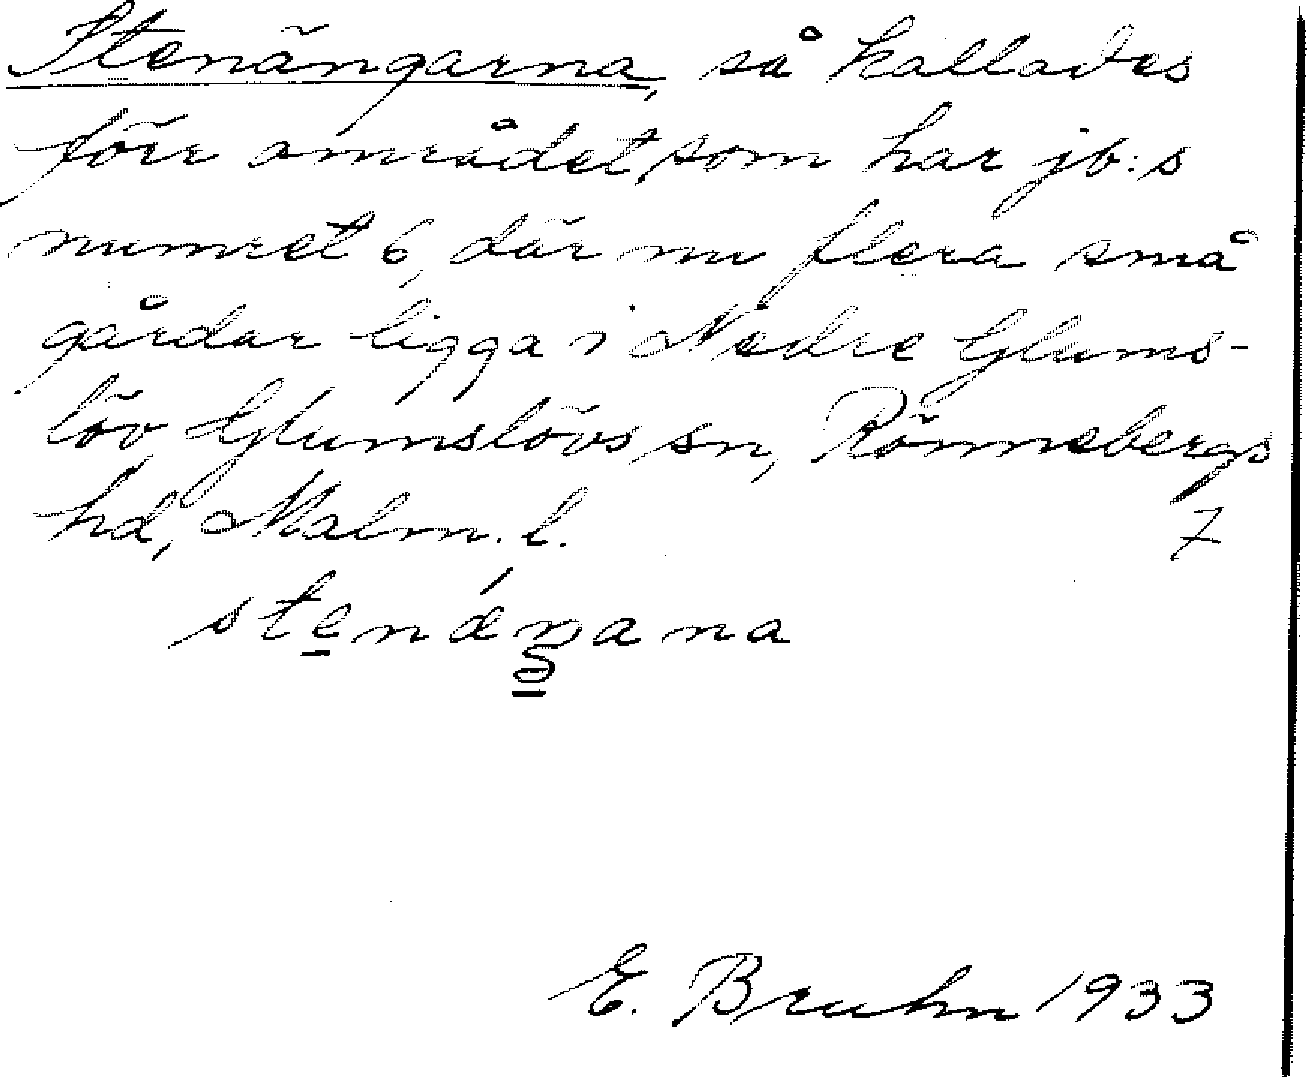 Stenängarna, så kallades
förr området, som har jb:s
numret 6, där nu flera små
gårdar ligga i Nedre Glums-
löv Glumslövs sn, Rönnebergs
hd, Malm. l.
7
E. Bruhn 1933